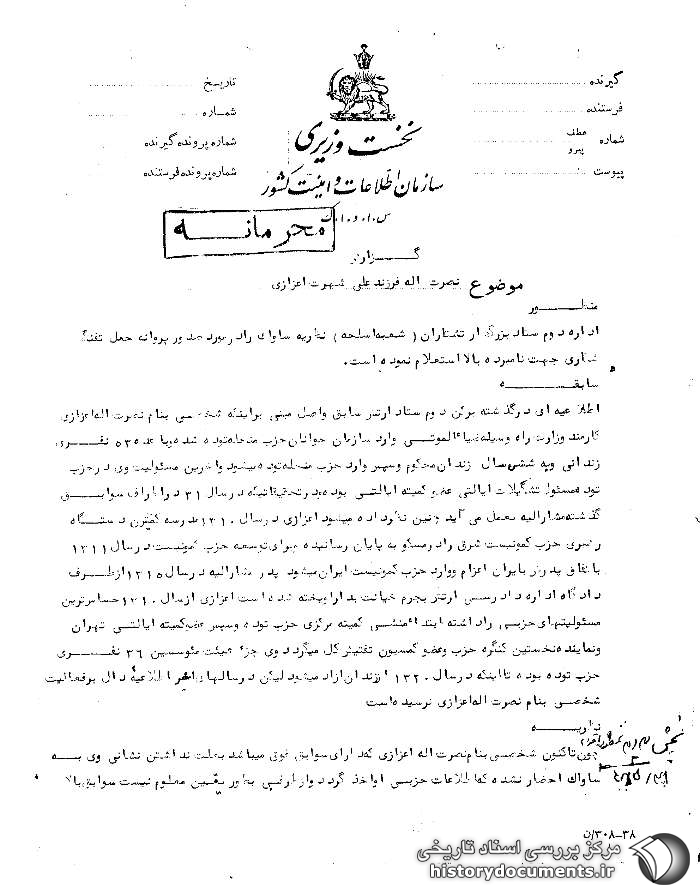 گیرنده
فرستنده
شماره
عطف
پیرو
پیوست
تاریخ
شماره
شماره پرونده گیرنده
شماره پرونده فرستنده
نخست وزیری
سازمان اطلاعات و امنیت کشور
س.ا.و.ا.ک
محرمانه
گزارش
موضوع نصرت اله فرزند علی شهرت اعزازی
منظور
اداره دوم ستاد بزرگ ارتشتاران (شعبه اسلحه) نظریه ساواک را در مورد صدور پروانه حمل تفنگ
شکاری جهت نامبرده بالا استعلام نموده است.
سابقه
اطلاعیه ای در گذشته برکن دوم ستاد ارتش سابق واصل مبنی براینکه شخصی بنام نصرت اله اعزازی
کارمند وزارت راه وسیله ضیاءالموتی وارد سازمان جوانان حزب منحله توده شده و با عده ۵۳ نفری
زندانی وبه شش سال زندان محکوم وسپس وارد حزب منحله توده میشود واخرین مسئولیت وی در حزب
توده مسئول تشکیلات ایالتی عضو کمیته ایالتی بوده و در تحقیقاتیکه در سال ۳۱ در اطراف سوابق
گذشته مشارالیه بعمل می آید چنین تذکر داده میشود اعزازی در سال ۱۳۱۰ مدرسه دستگاه
رهبری حزب کمونیست شرق را در مسکو به پایان رسانیده و برای توسعه حزب کمونیست در سال ۱۳۱۱
باتفاق پدرش بایران اعزام ووارد حزب کمونیست ایران میشود پدر مشارالیه در سال ۱۳۱۵ از طرف
دادگاه اداره دادرسی ارتش بجرم خیانت بدار اویخته شده است اعزازی از سال ۱۳۱۰ حساسترین
مسئولیتهای حزبی را داشته ابتدا منشی کمیته مرکزی حزب توده وسپس عضو کمیته ایالتی تهران
ونماینده نخستین کنگره حزب وعضو کمسیون تفتیش کل میگردد وی جزء هیئت موسسین ۲۶ نفری
حزب توده بوده تا اینکه در سال ۱۳۲۰ از زندان ازاد میشود لیکن در سالهای اخیر اطلاعیه دال برفعالیت
شخصی بنام نصرت اله اعزازی نرسیده است
نظریه
چون تاکنون شخصی بنام نصرت اله اعزازی که دارای سوابق فوق میباشد بعلت نداشتن نشانی وی به
ساواک احضار نشده که اطلاعات حزبی او اخذ گردد واز طرفی بطور یقین معلوم نیست سوابق بالا
۳۸-۳۰۸/ن
مرکز بررسی اسناد تاریخی
historydocuments.ir